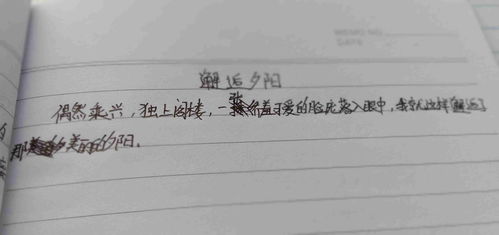 邂逅夕阳
偶然乘兴，独上阁楼，一张 着可爱的脸庞落入眼中，我就这样邂逅了
那 美丽的夕阳。